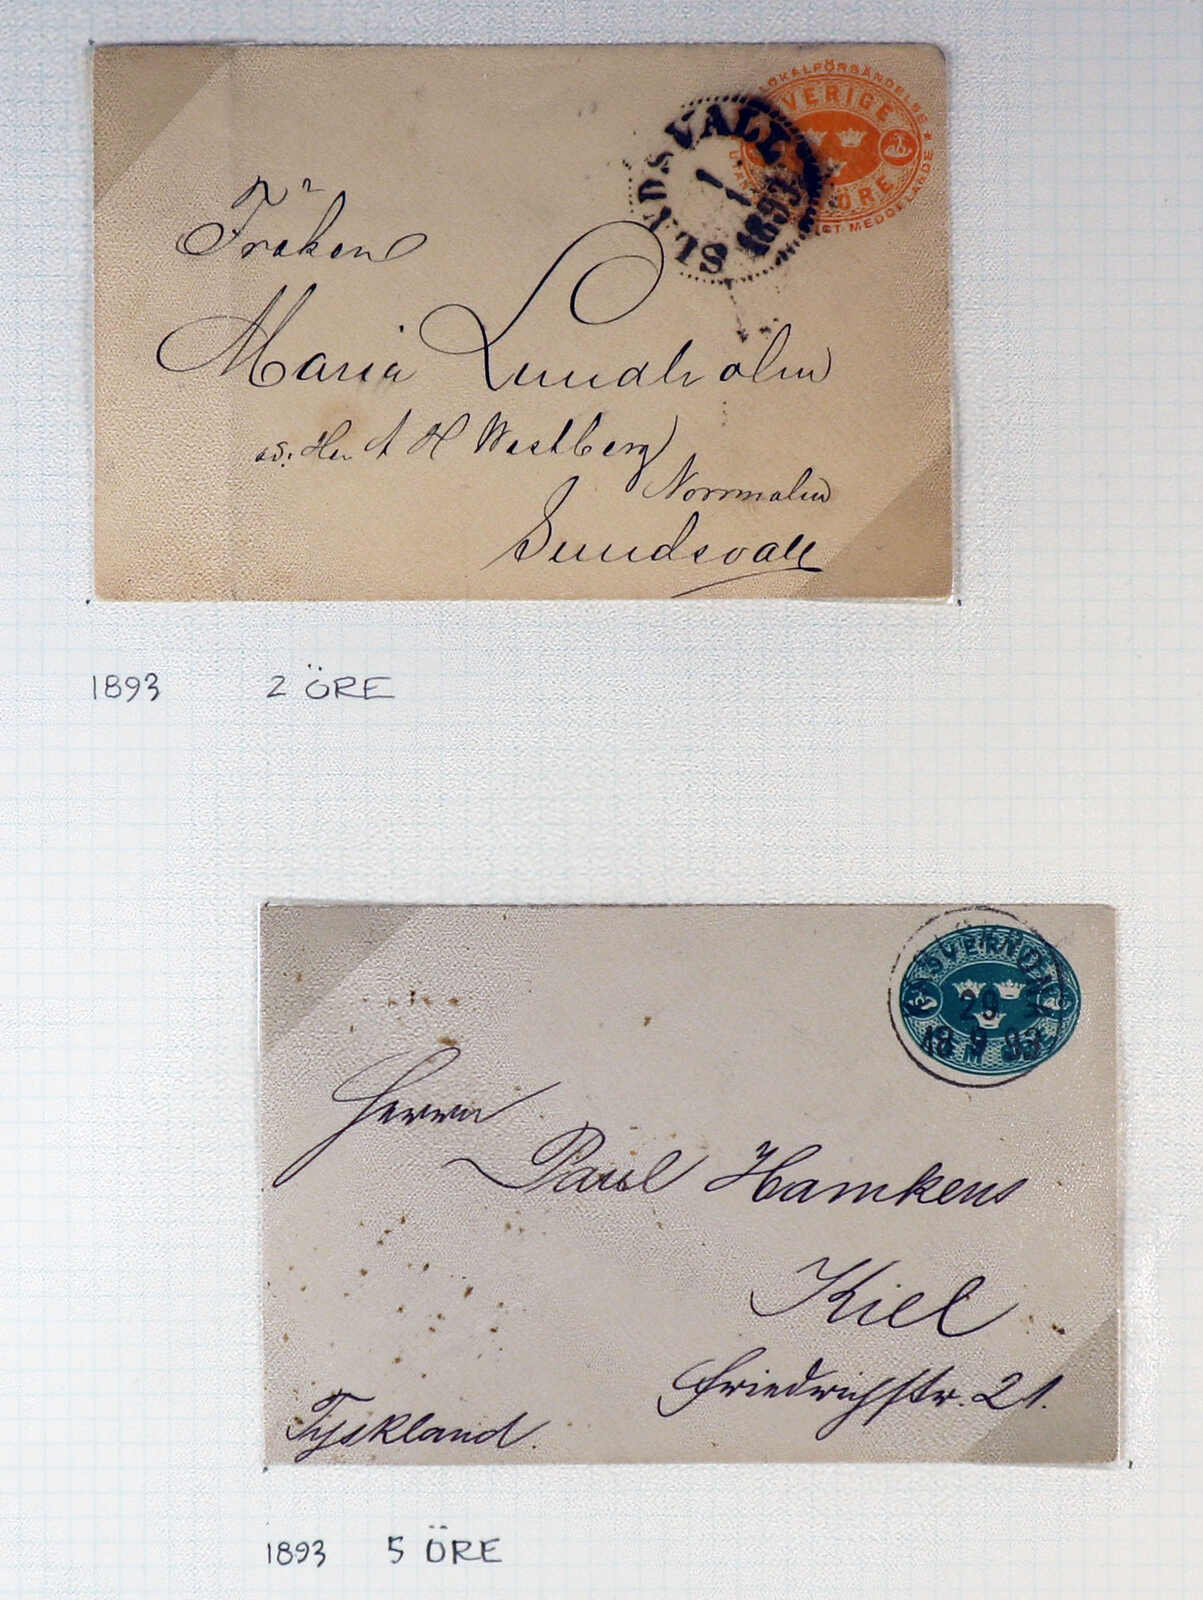 LOKALFÖRSÄNDELSE
SVERIGE
2
ÖRE
MEDDELANDE
SUNDSVALL
1
1
1893
Fröken
Maria Lundholm
ad: Herr A H Westberg
Norrmalm
Sundsvall
1893 2 ÖRE
29
18 9 93
Herrn
Paul Hamkens
Kiel
Friedrichstr. 21.
Tyskland.
1893 5 ÖRE